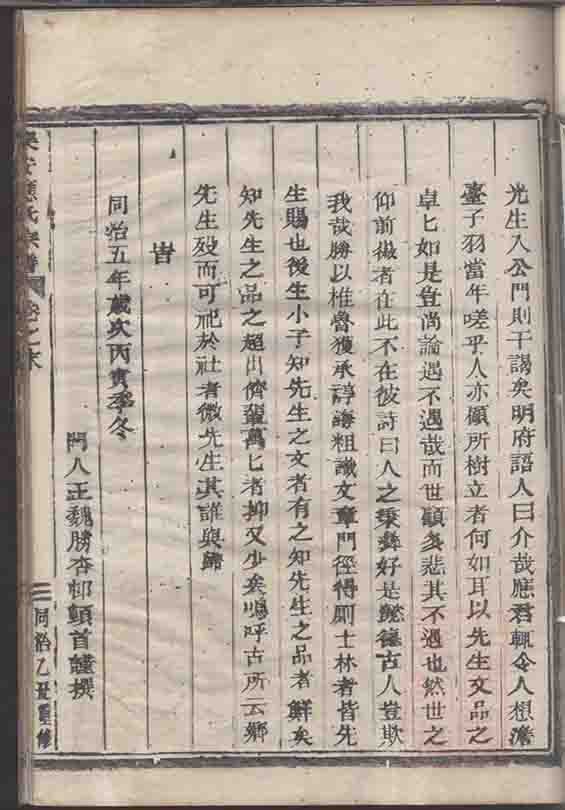 先生入公門則干謁矣明府語人曰介哉應君輒令人想澹
臺子羽當年嗟乎人亦顧所樹立者何如耳以先生文品之
卓匕如是豈尚論遇不遇哉而世顧多悲其不遇也然世之
仰前徽者在此不在彼詩曰人之秉彝好是懿德古人豈欺
我哉勝以椎魯獲承諄誨粗識文章門徑得厠士林者皆先
生賜也後生小子知先生之文者有之知先生之品者鮮矣
知先生之品之超出儕輩萬匕者抑又少矣嗚呼古所云鄉
先生殁而可祀於社者微先生其誰與歸
旹
同治五年歲次丙寅季冬
門人王魏勝杏邨頓首謹撰
應氏宗譜 卷之末
同治乙丑重修